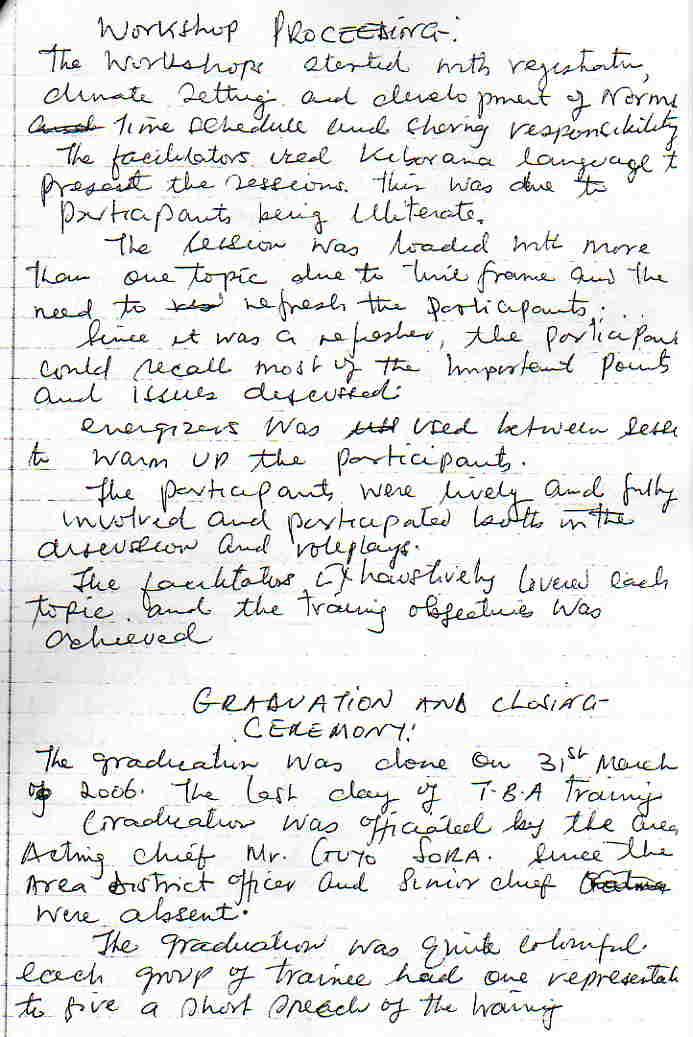 WORKSHOP PROCEEDING:
The Workshops started with registratn,
climate setting and development of Norms
Time schedule and sharing responsibility
The facilitators used Kiborana language t
present the sessions. This was due to
participants being Illiterate.
The session was loaded with more
than one topic due to time frame and the
need to refresh the participants.
Since it was a refresher, the participant
could recall most of the Important points
and issues discussed.
energizers was used between sess
to warm up the participants.
The participants were lively and fully
involved and participated both in the
discussion and roleplays.
The facilitators Exhaustively covered each
topic and the training objectives was
achieved
GRADUATION AND CLOSING
CEREMONY:
The graduation was done on 31st March
2006. The last day of T.B.A training
Graduation was officiated by the area
Acting chief Mr. GUYO SORA. Since the
Area District officer and Senior chief
were absent.
The graduation was quite colourful.
each group of trainee had one representati
to give a short speech of the training